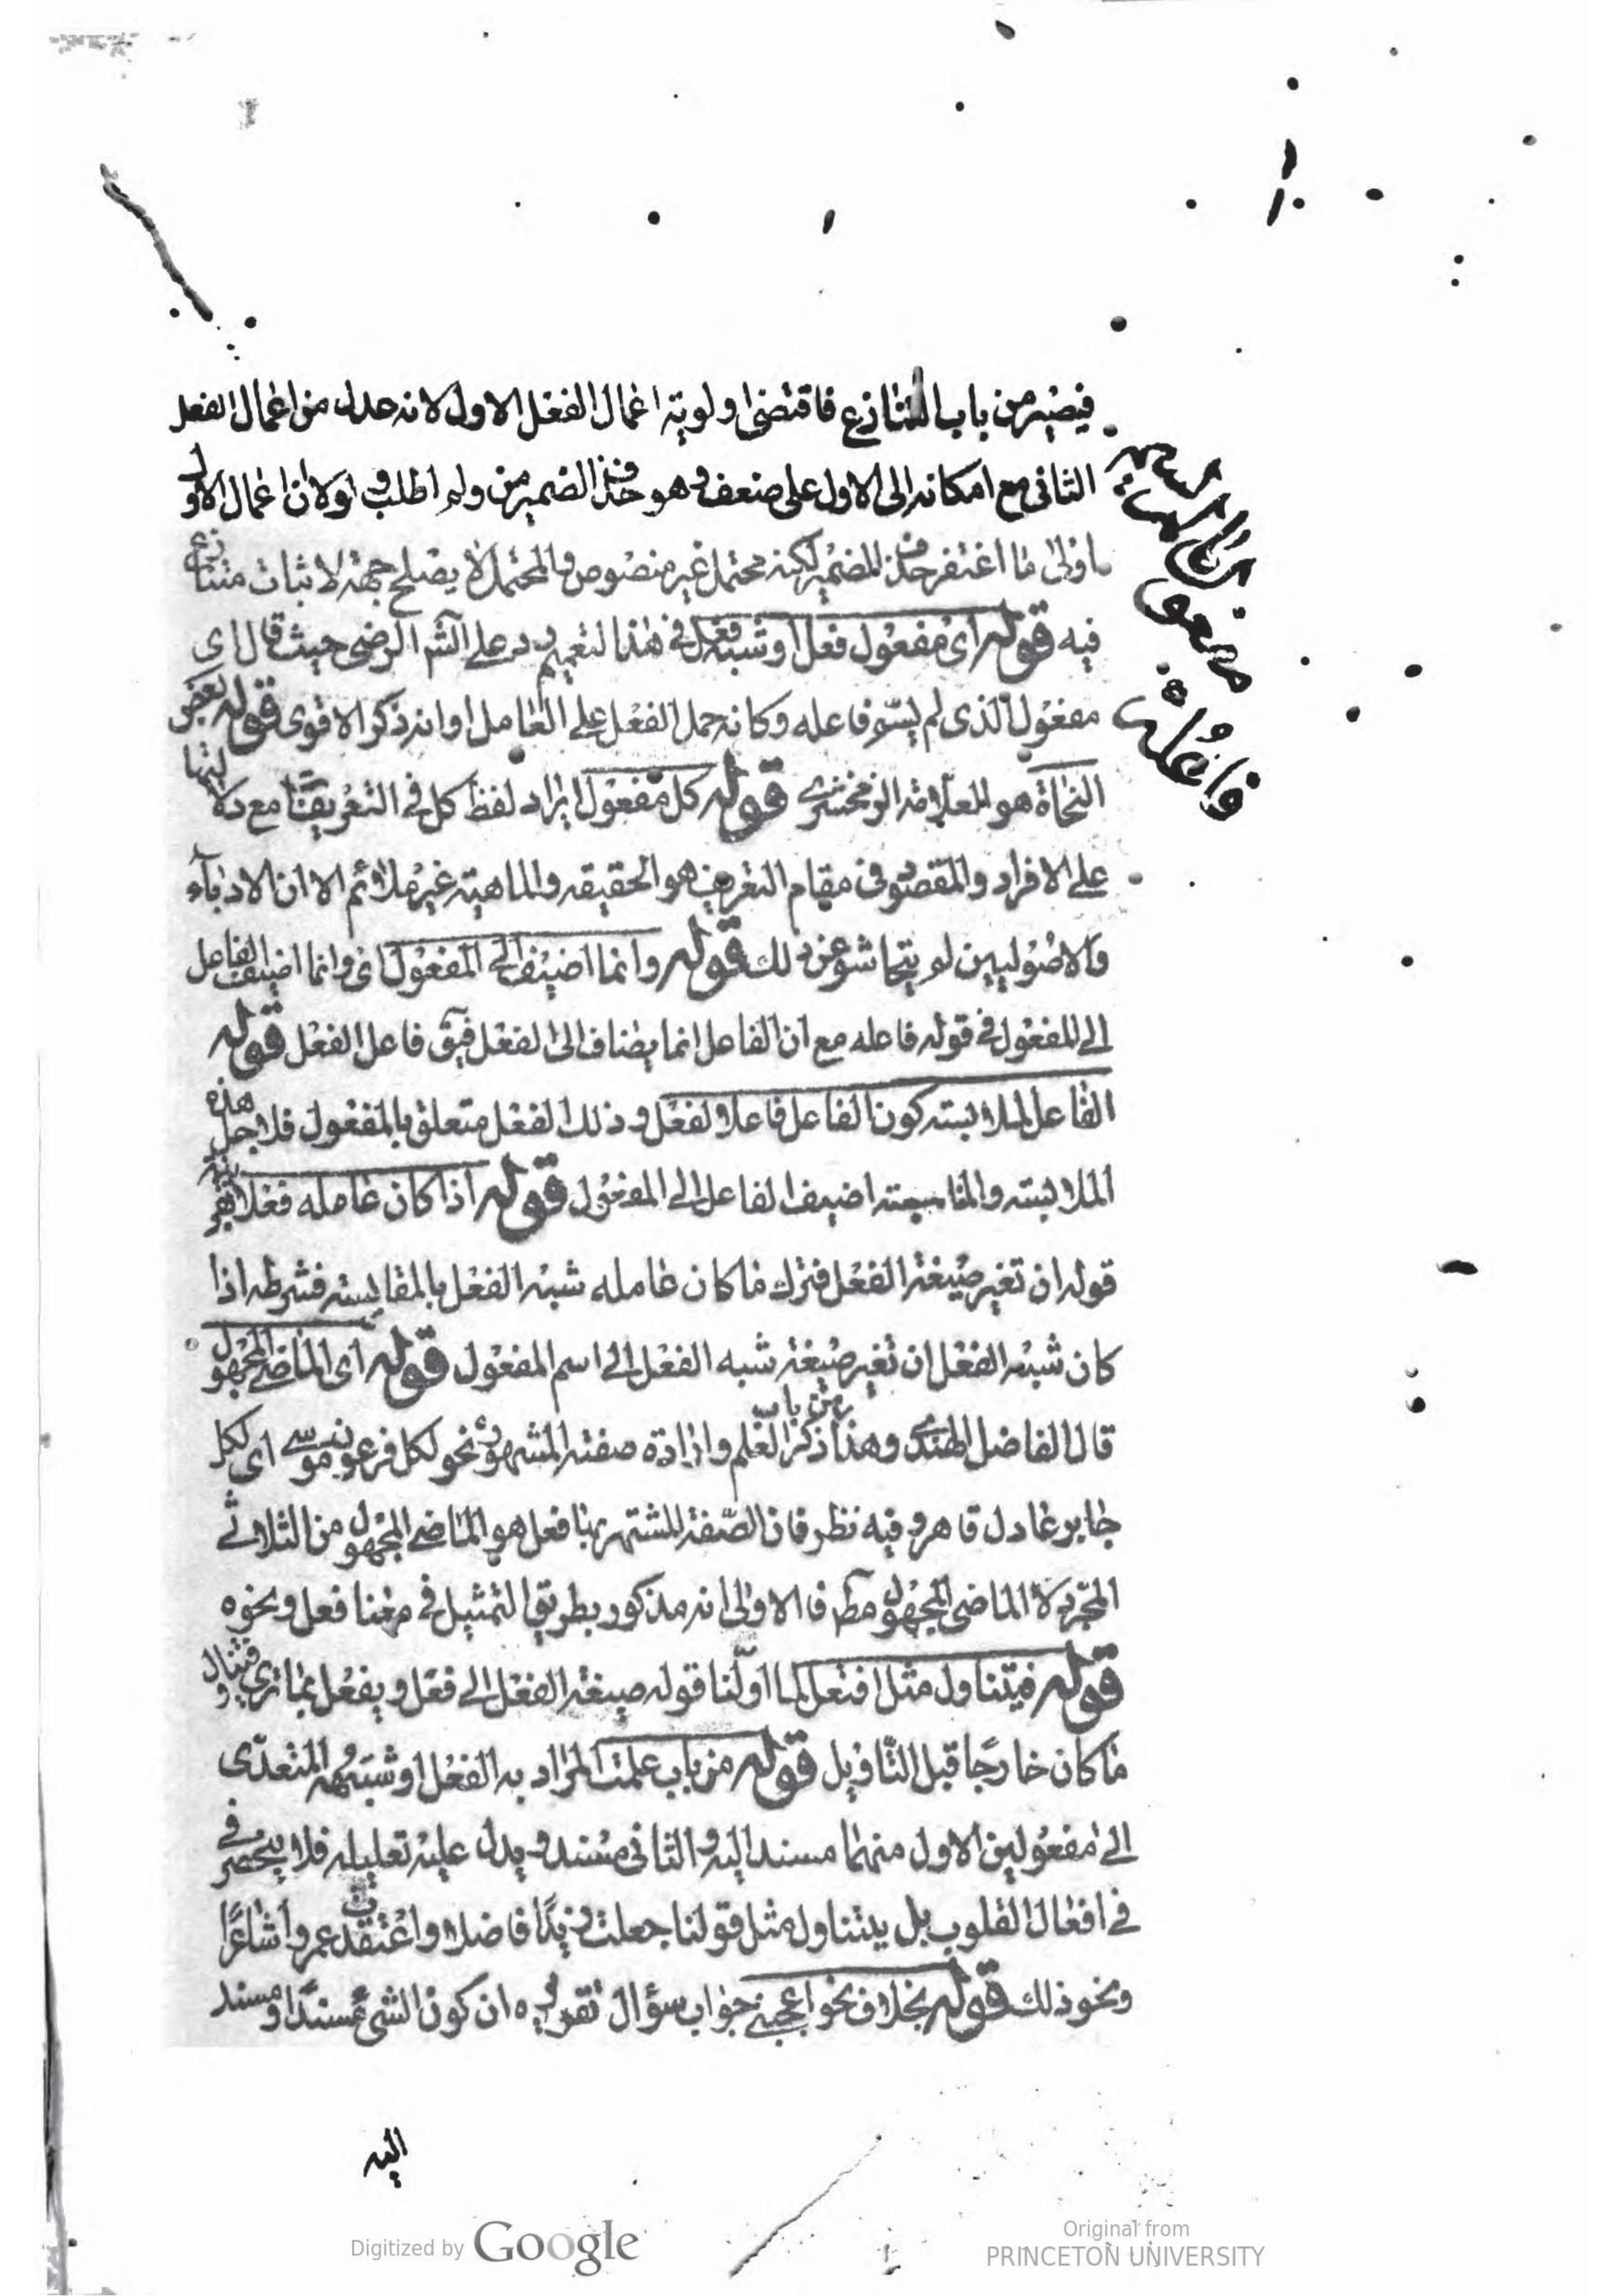 فيصير من باب التنازع فاقتضى اولوية اعمال الفعل الاول لانه عدل من اعمال الفعل
الثانى مع امكانه الى الاول على ضعف وهو حذف الضمير من ولم اطلب ولولا ان اعمال الاول
اولى ما اغتفر حذف الضمير لكنه محتمل غير منصوص والمحتمل لا يصلح حجة لاثبات متنازع
فيه قوله اى مفعول فعل او شبه فعل فى هذا التعميم رد على الش الرضى حيث قال اى
مفعول الذى لم يسم فاعله وكانه حمل الفعل على العامل او انه ذكر الاقوى قوله بعض
النحاة هو العلامة الزمخشرى قوله كل مفعول ايراد لفظ كل فى التعريفات مع دلالتها
على الافراد والمقصود فى مقام التعريف هو الحقيقه والماهية غير ملائم الا ان الادباء
والاصوليين لم يتحاشوا عن ذلك قوله وانما اضيف الى المفعول اى وانما اضيف الفاعل
الى المفعول فى قوله فاعله مع ان الفاعل انما يضاف الى الفعل فيق فاعل الفعل قوله
الفاعل لملابسته كون الفاعل فاعلا لفعل وذلك الفعل متعلق بالمفعول فلاجل هذه
الملابسة والمناسبة اضيف الفاعل الى المفعول قوله اذا كان عامله فعلا بقرينة
قوله ان تغير صيغة الفعل فترك ما كان عامله شبه الفعل بالمقايسة فشرطه اذا
كان شبه الفعل ان تغير صيغة شبه الفعل الى اسم المفعول قوله اى الماضى المجهول
قال الفاضل الهندى وهذا من باب ذكر العلم وارادة صفته المشهورة نحو لكل فرعون موسى اى لكل
جابر عادل قاهر وفيه نظر فان الصفة المشتهر بها فعل هو الماضى المجهول من الثلاثى
المجرد لا الماضى المجهول مط فالاولى انه مذكور بطريق التمثيل فى معنا فعل ونحوه
قوله فيتناول مثل افتعل لما اولنا قوله صيغة الفعل الى فعل ويفعل بما ترى
ما كان خارجا قبل التاويل قوله من باب علمت المراد به الفعل او شبهه المتعدى
الى مفعولين الاول منهما مسند اليه والثانى مسند ويدل عليه تعليله فلا ينحصر فى
فى افعال القلوب بل يتناول مثل قولنا جعلت زيدا فاضلا واعتقدت عمروا شاعرا
ونحو ذلك قوله بخلاف نحو اعجبنى جواب سؤال تقديره ان كون الشئ مسندا ومسند
اليه